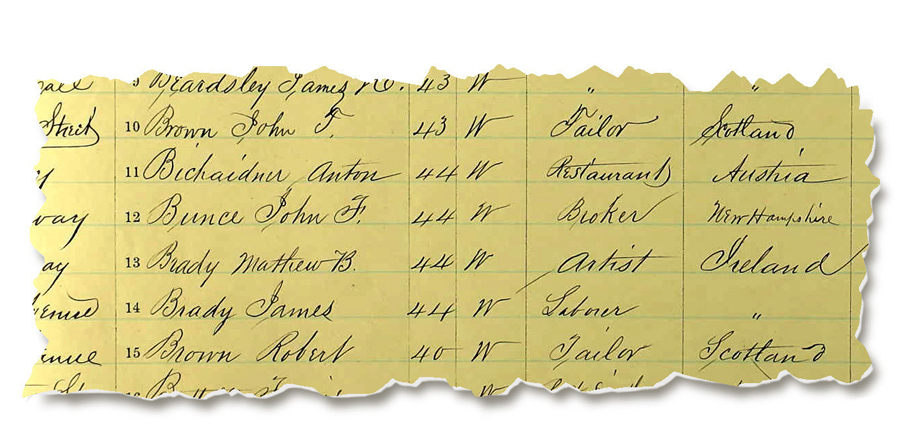 Beardsley James 43 W " "
Street 10 Brown John F. 43 W Tailor Scotland
11 Bichaidner Anton 44 W Restaurant Austria
way 12 Bunce John F. 44 W Broker New Hampshire
ay 13 Brady Mathew B. 44 W Artist Ireland
enue 14 Brady James 44 W Laborer "
enue 15 Brown Robert 40 W Tailor Scotland
W